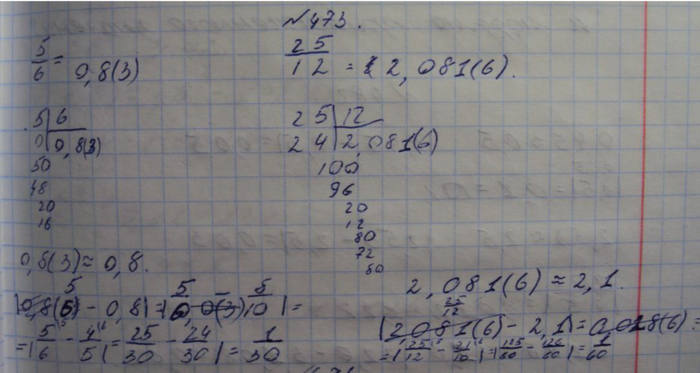 №473.
5/6 = 0,8(3)
25/12 = 2,081(6).
5 | 6
0 | 0,8(3)
50
48
20
16
25 | 12
24 | 2,081(6)
100
96
20
12
80
72
80
0,8(3) ≈ 0,8.
2,081(6) ≈ 2,1.
- 0,8| = | 5/6 - 5/10| =
= |5/6 - 4/5| = |25/30 - 24/30| = 1/30
|2081(6) - 2,1| = 0,018(6) =
= |25/12 - 21/10| = |125/60 - 126/60| = 1/60